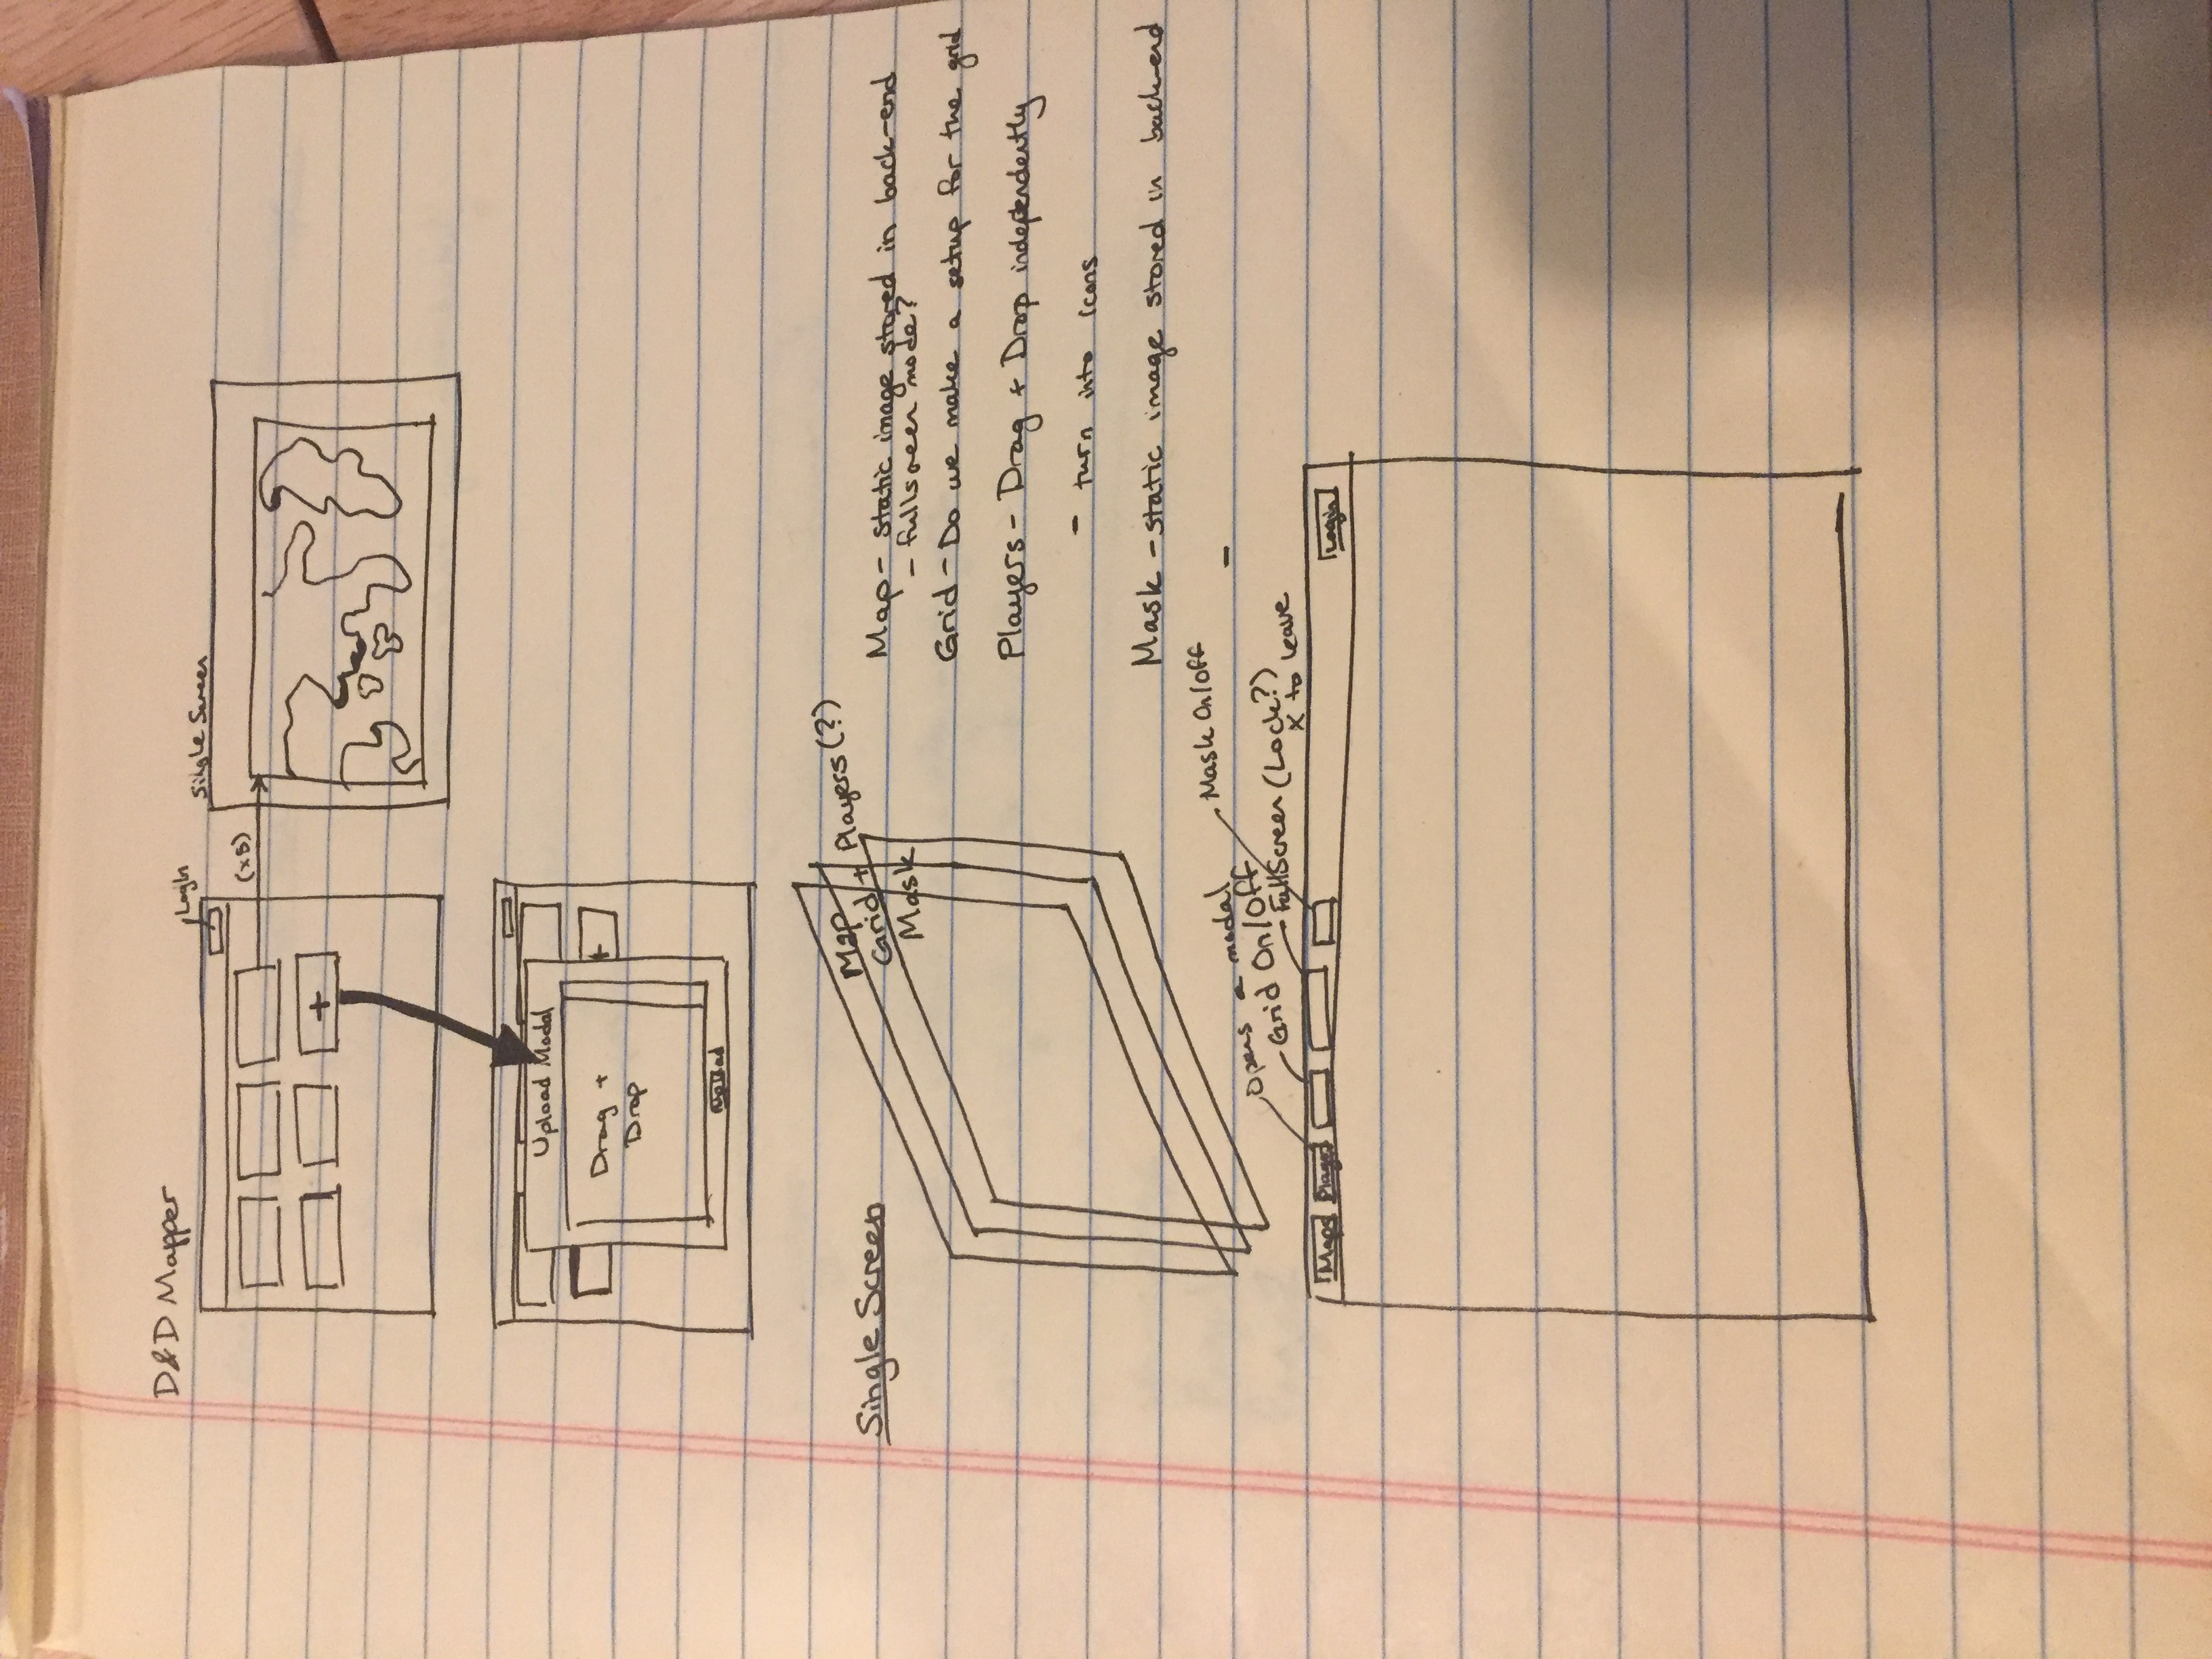 D&D Mapper
LogIn
Single Screen
(x5)
+
Upload Modal
Drag +
Drop
+
Upload
Single Screen
Map
Grid + Players (?)
Mask
Map - static image stored in back-end
- fullscreen mode?
Grid - Do we make a setup for the grid
Players - Drag + Drop independently
- turn into icons
Mask - static image stored in back-end
-
Mask On/Off
Opens a modal
Grid On/Off
FullScreen (Lock?)
X to leave
Maps
Players
Login